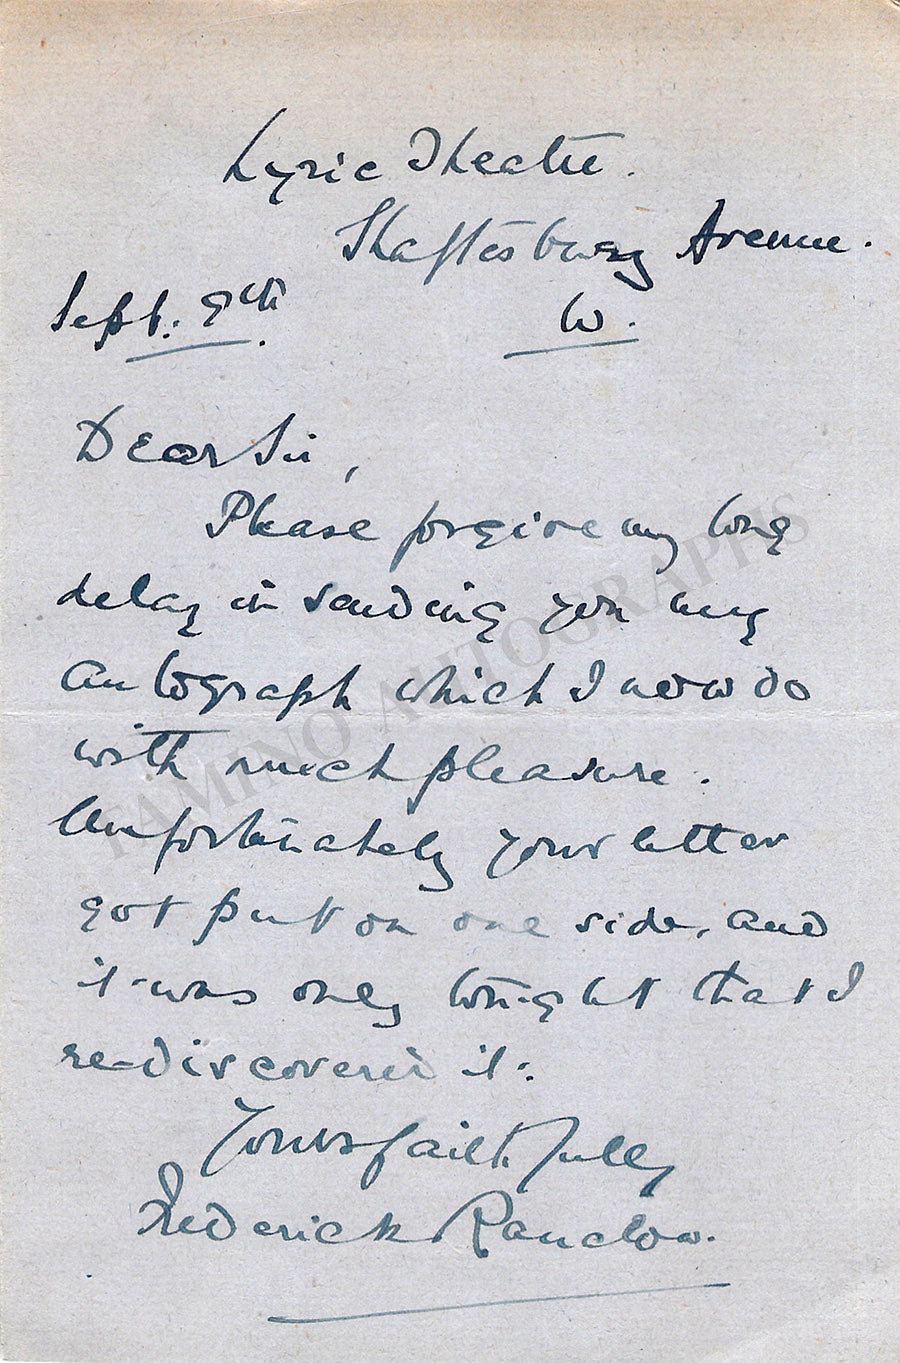 Lyric Theatre.
Shaftesbury Avenue.
Sept. 9th.
W.
Dear Sir,
Please forgive my long
delay in sending you my
autograph which I now do
with much pleasure.
Unfortunately your letter
got put on one side, and
it was only to-night that I
re-discovered it.
Yours faithfully
Frederick Ranalow.
TAMINO AUTOGRAPHS